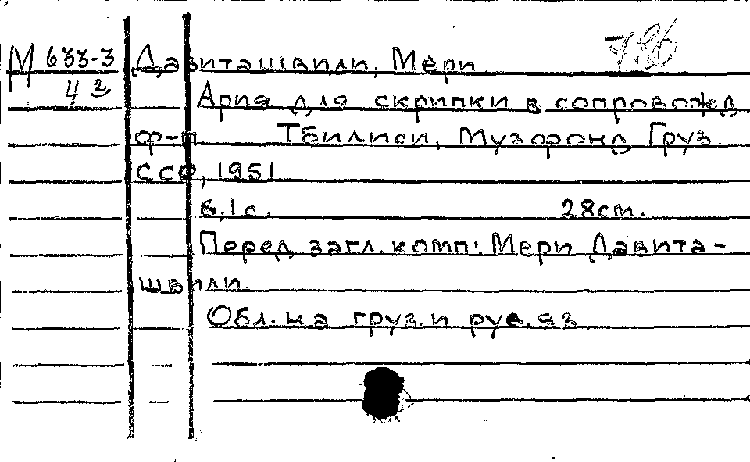 М 633-3 Давиташвили, Мери 7.96
42 Ария для скрипки в сопровожд
ф-п Тбилиси, Музфонд Груз
ССР, 1951
6,1с. 28см.
Перед загл. комп: Мери Давита-
швили
Обл. на груз. и рус. яз